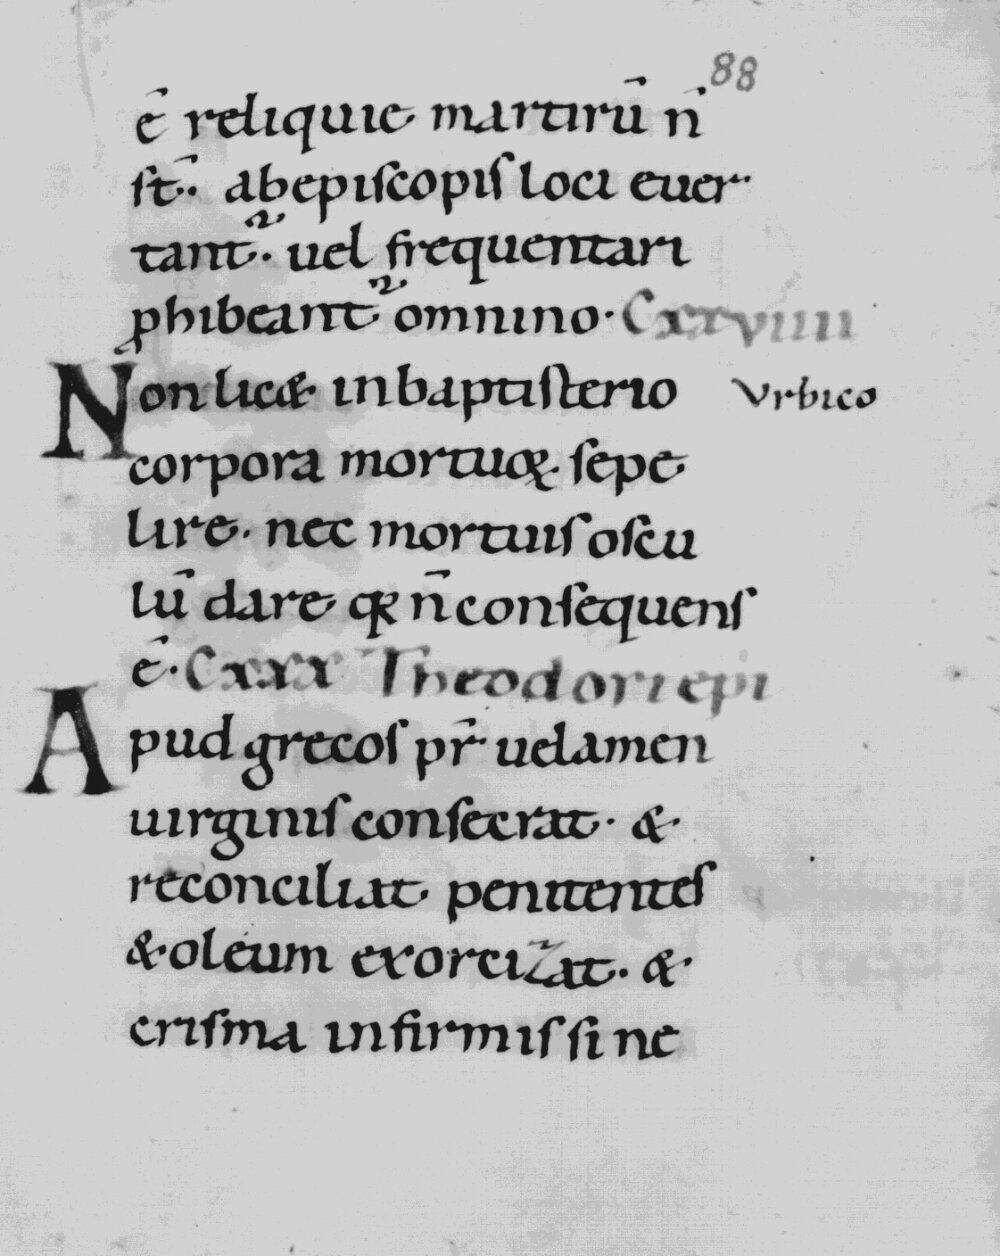 88
ē reliquie martirū n̄
st̄. ab episcopis loci euer
tant᷑. uel frequentari
ꝓhibeant᷑ omnino. Cxxviiii
Non lic& in baptisterio Vrbico
corpora mortuoꝝ sepe
lire. nec mortuis oscu
lū dare qꝛ n̄ consequens
ē. Cxxx Theodori epi
Apud grecos pr̄ uelamen
uirginis consecrat. &
reconciliat penitentes
& oleum exorcizat. &
crisma infirmis si ne